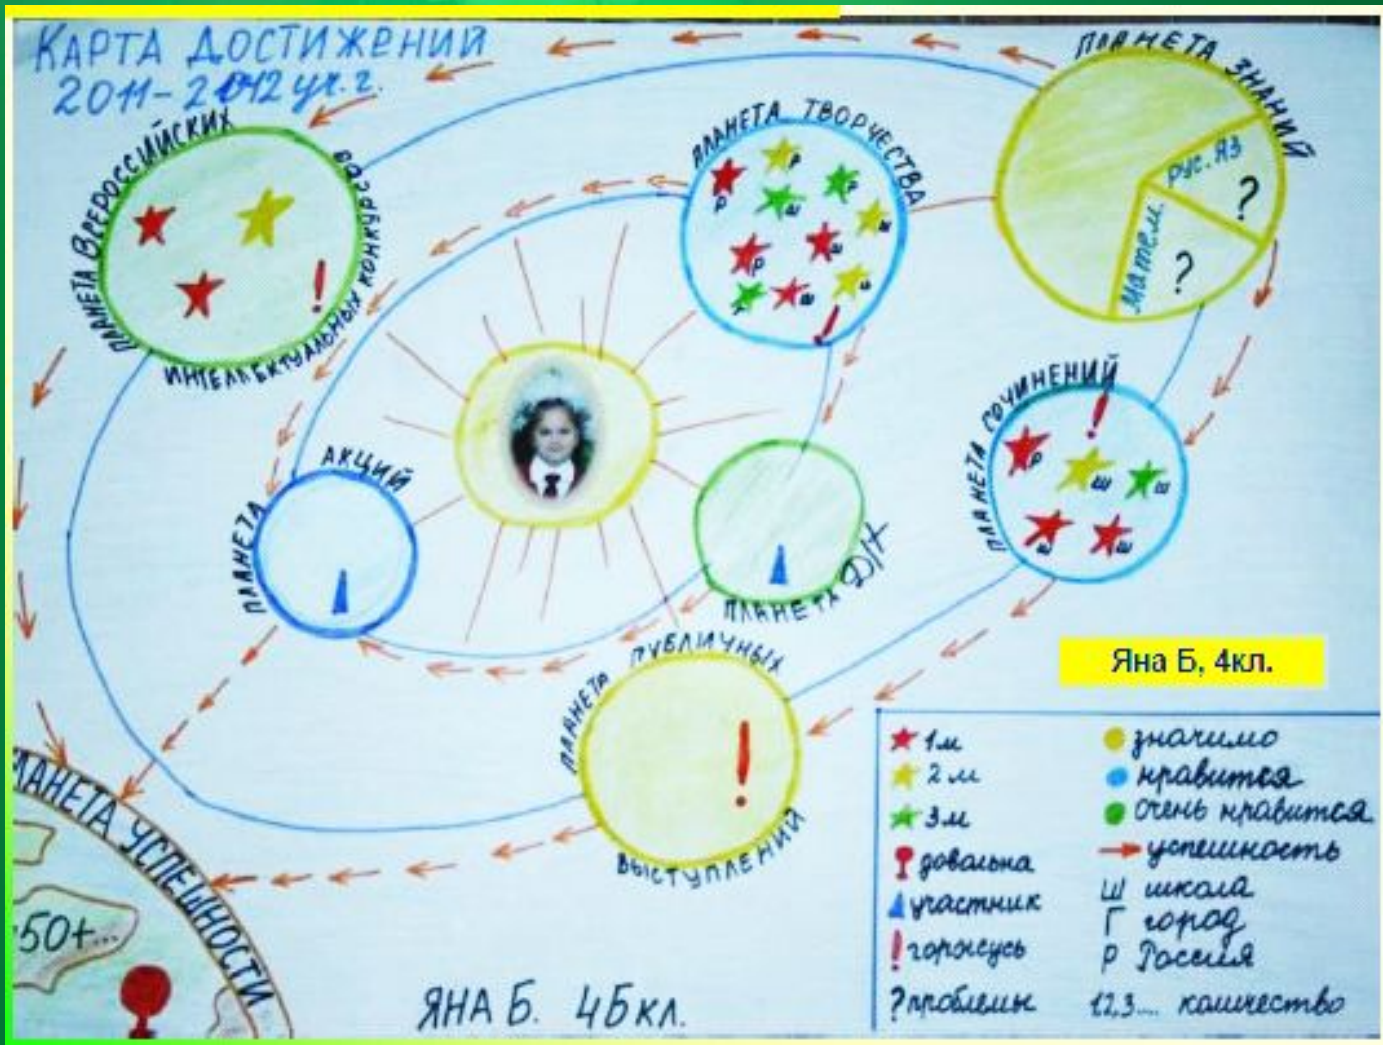 КАРТА ДОСТИЖЕНИЙ
2011-2012 уч. г.
ПЛАНЕТА ВСЕРОССИЙСКИХ
ИНТЕЛЛЕКТУАЛЬНЫХ КОНКУРСОВ
ПЛАНЕТА ТВОРЧЕСТВА
Р
Р
Ш
Г
Ш
Р
Ш
Ш
Ш
ПЛАНЕТА ЗНАНИЙ
РУС. ЯЗ
?
Матем.
?
ПЛАНЕТА СОЧИНЕНИЙ
Р
Ш
Ш
Ш
Ш
ПЛАНЕТА АКЦИЙ
ПЛАНЕТА
ПЛАНЕТА ПУБЛИЧНЫХ
ВЫСТУПЛЕНИЙ
Яна Б, 4кл.
1м
2м
3м
довольна
участник
! горжусь
? проблемы
значимо
нравится
очень нравится
успешность
Ш школа
Г город
Р Россия
1,2,3.... количество
ЛАНЕТА УСПЕШНОСТИ
50+...
ЯНА Б. 4Б КЛ.